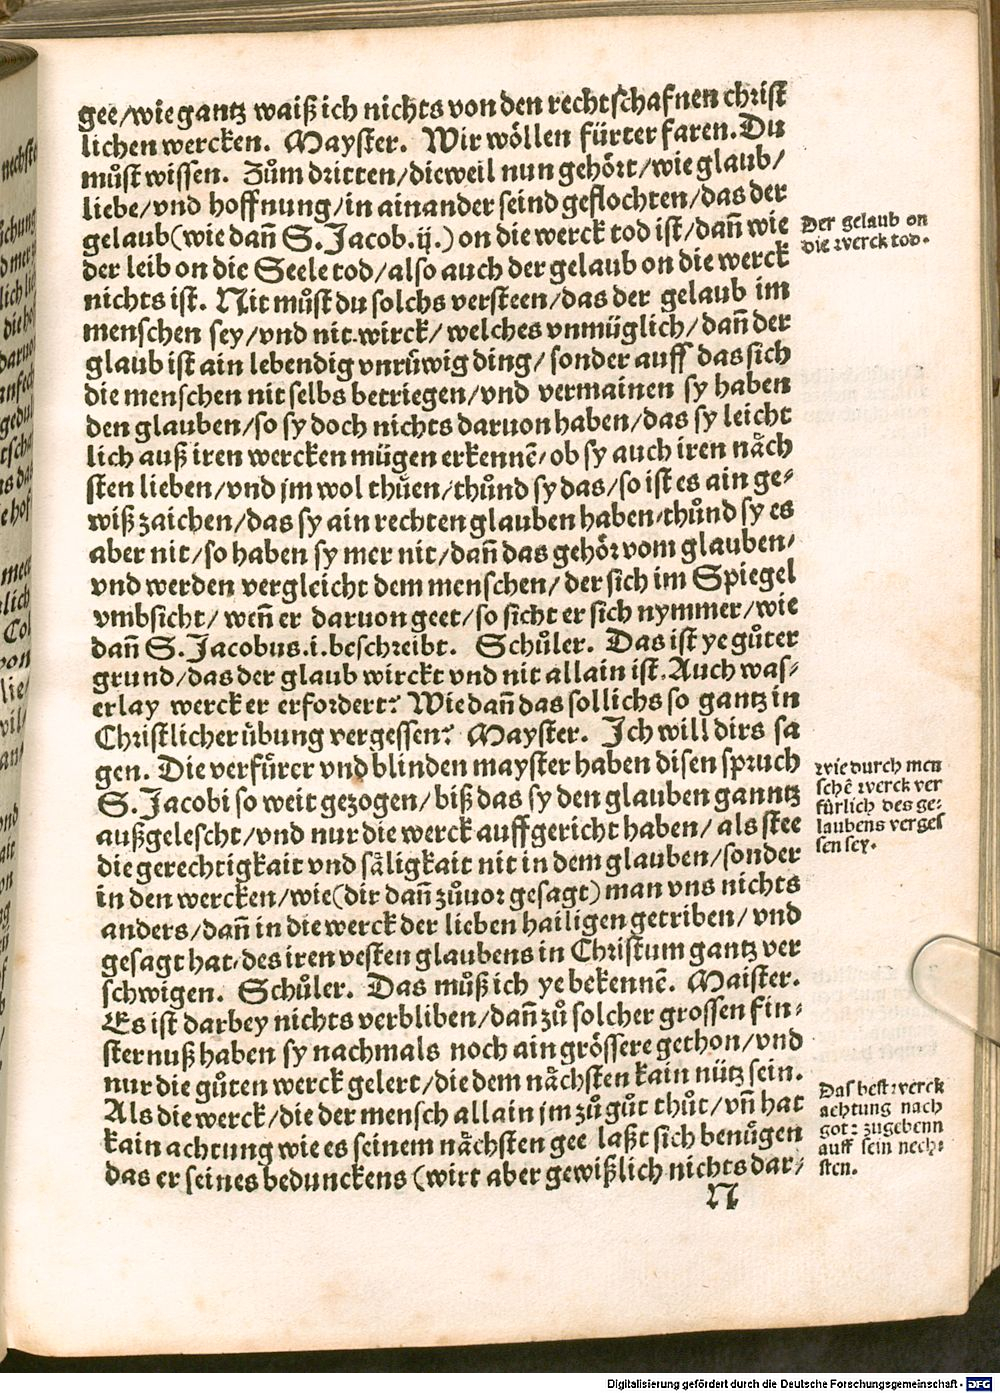 gee/wie gantz waiß ich nichts von den rechtschafnen christ
lichen wercken. Mayster. Wir wöllen fürter faren. Du
můst wissen. Zům dritten/dieweil nun gehört/wie glaub/
liebe/vnd hoffnung/in ainander seind geflochten/das der
gelaub (wie dañ S. Jacob.ij.) on die werck tod ist/dañ wie
der leib on die Seele tod/also auch der gelaub on die werck
nichts ist. Nit můst du solchs versteen/das der gelaub im
menschen sey/vnd nit wirck/welches vnmüglich/dañ der
glaub ist ain lebendig vnrůwig ding/sonder auff das sich
die menschen nit selbs betriegen/vnd vermainen sy haben
den glauben/so sy doch nichts daruon haben/das sy leicht
lich auß iren wercken mügen erkennē/ob sy auch iren näch
sten lieben/vnd jm wol thůen/thůnd sy das/so ist es ain ge-
wiß zaichen/das sy ain rechten glauben haben/thůnd sy es
aber nit/so haben sy mer nit/dañ das gehör vom glauben/
vnd werden vergleicht dem menschen/der sich im Spiegel
vmbsicht/weñ er daruon geet/so sicht er sich nymmer/wie
dañ S. Jacobus.i.beschreibt. Schůler. Das ist ye gůter
grund/das der glaub wirckt vnd nit allain ist. Auch was-
erlay werck er erfordert? Wie dañ das sollichs so gantz in
Christlicher übung vergessen? Mayster. Ich will dirs sa
gen. Die verfürer vnd blinden mayster haben disen spruch
S. Jacobi so weit gezogen/biß das sy den glauben ganntz
außgelescht/vnd nur die werck auffgericht haben/als stee
die gerechtigkait vnd säligkait nit in dem glauben/sonder
in den wercken/wie (dir dañ zůuor gesagt) man vns nichts
anders/dañ in die werck der lieben hailigen getriben/vnd
gesagt hat/des iren vesten glaubens in Christum gantz ver
schwigen. Schůler. Das můß ich ye bekennē. Maister.
Es ist darbey nichts verbliben/dañ zů solcher grossen fin-
sternuß haben sy nachmals noch ain grössere gethon/vnd
nur die gůten werck gelert/die dem nächsten kain nütz sein.
Als die werck/die der mensch allain jm zů gůt thůt/vñ hat
kain achtung wie es seinem nächsten gee laßt sich benůgen
das er seines bedunckens (wirt aber gewißlich nichts dar-
N
Der gelaub on
die werck tod.
Wie durch men
schē werck ver
fürlich des ge-
laubens verges
sen sey.
Das best werck
achtung nach
got: zugebenn
auff sein nech-
sten.
Digitalisierung gefördert durch die Deutsche Forschungsgemeinschaft - DFG